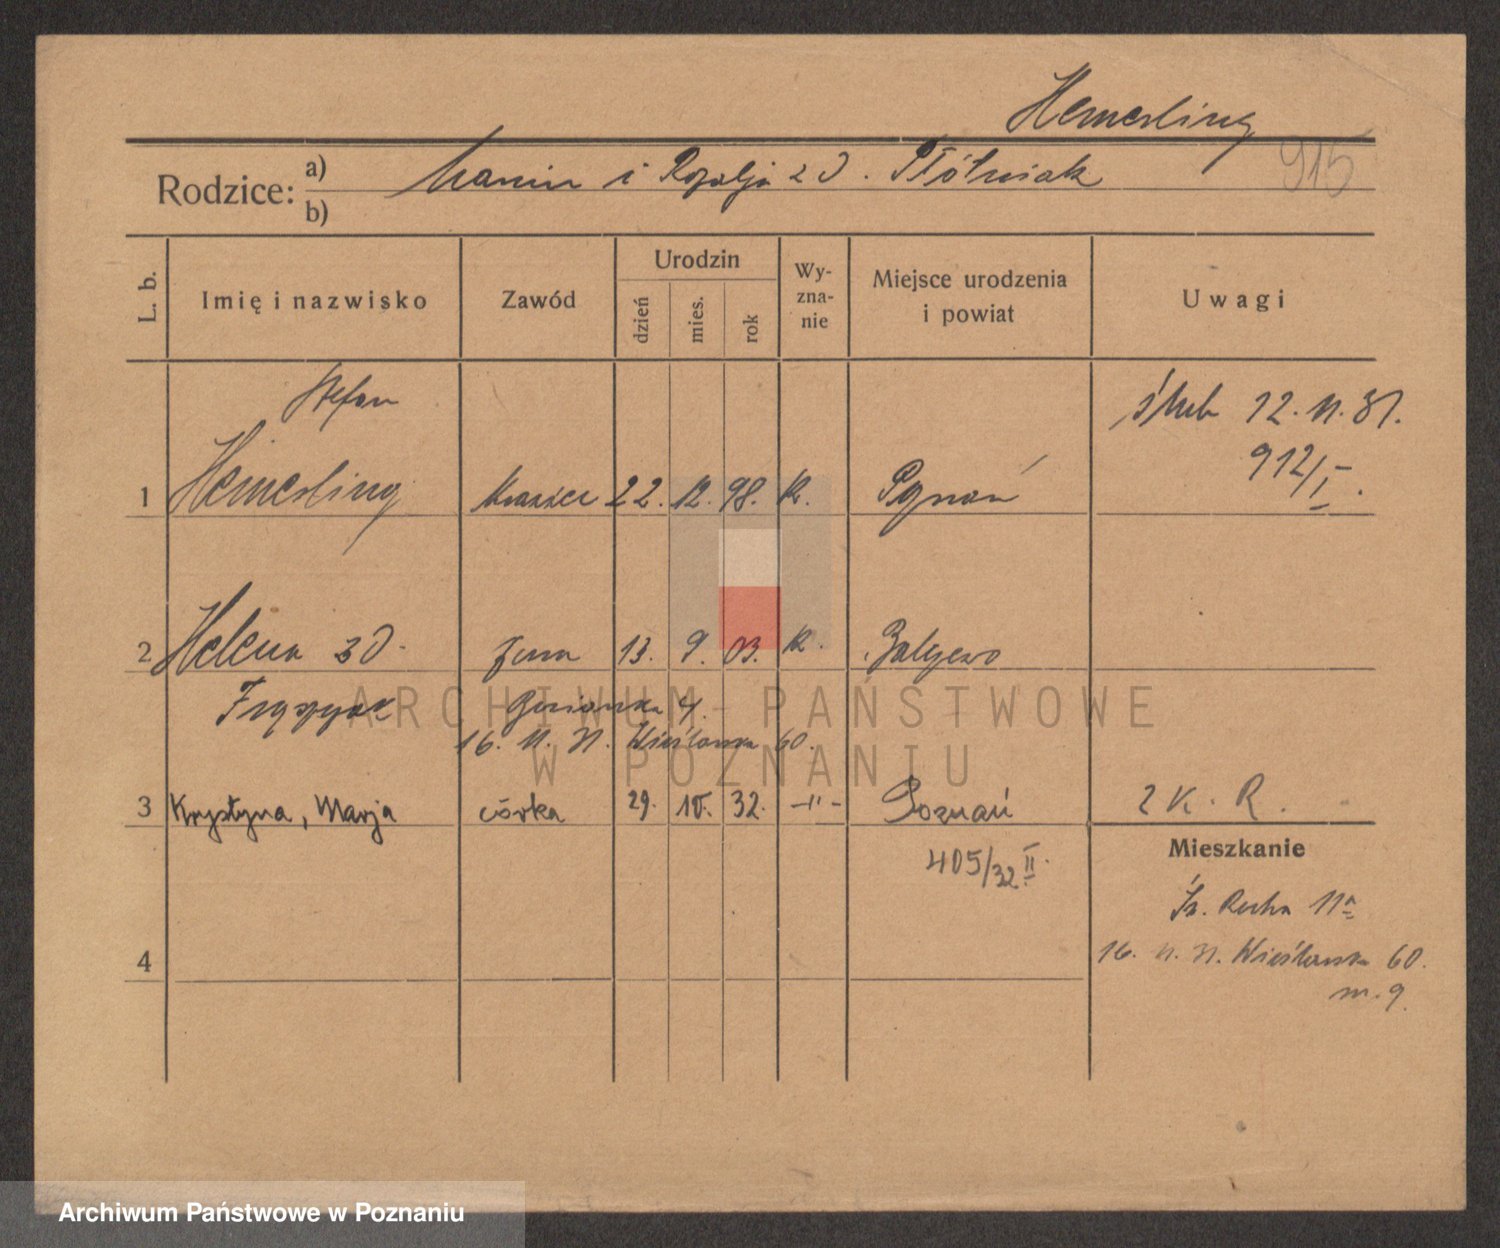 Hemerling
915
Rodzice: a) i Rozalja zd. Płótniak
b)
L. b. Imię i nazwisko Zawód Urodzin dzień mies. rok Wy-zna-nie Miejsce urodzenia i powiat Uwagi
Stefan
ślub 12. 11. 31.
912/I.
1 Hemerling 22. 12. 98. k. Poznań
2 Helena zd. żona 13. 9. 03. k.
4.
16. 11. 60.
3 Krystyna, Marja córka 29. 10. 32. -"- Poznań 2 K. R.
405/32 II.
Mieszkanie
Św. Rocha 11a
16. 60.
m. 9.
4
ARCHIWUM PAŃSTWOWE
W POZNANIU
Archiwum Państwowe w Poznaniu